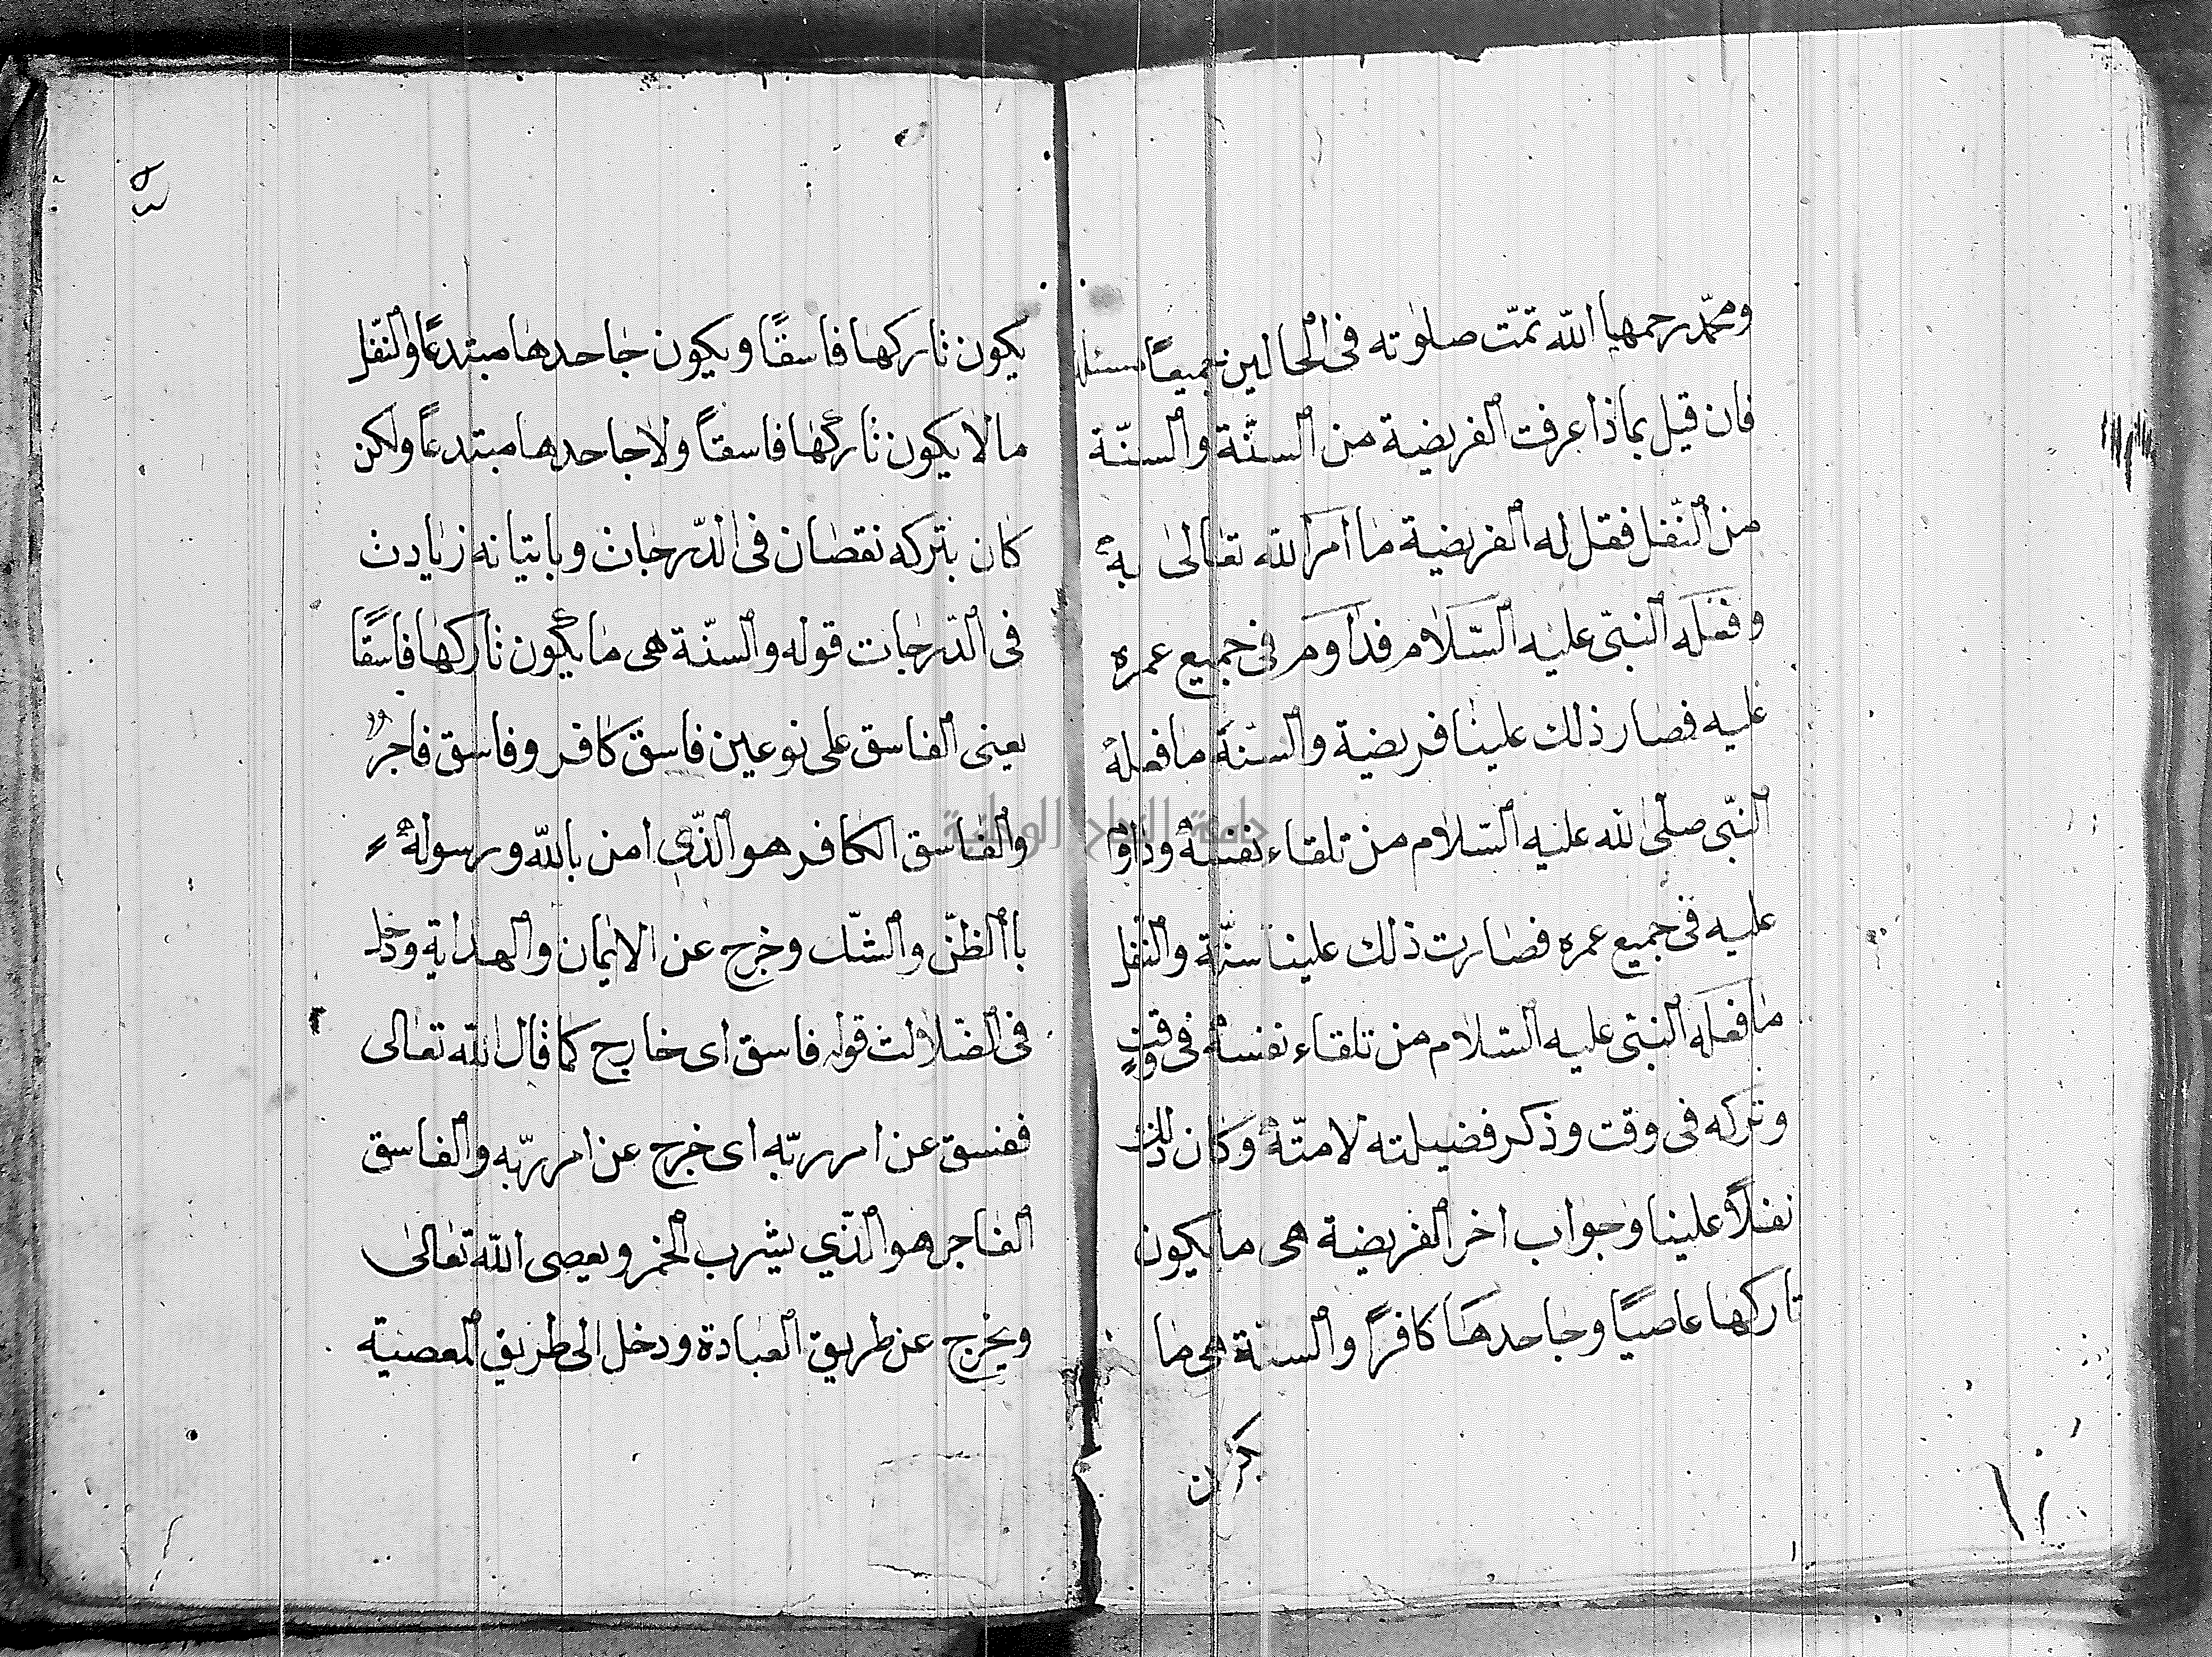 ومحمّد رحمهما الله تمّت صلوٰته فى الحالين جميعًا مسئلة
فان قيل بماذا عرفت الفريضية من السنّة والسنّة
من النّفل فقل له الفريضية ما امر الله تعالىٰ به
وفعله النبىّ عليه السّلام فداوم فى جميع عمره
عليه فصار ذلك علينا فريضية والسنة ما فعله
النبّى صلّى الله عليه السّلام من تلقاء نفسه وداوا
عليه فى جميع عمره فصارت ذلك علينا سنّة والنّفل
ما فعله النبىّ عليه السّلام من تلقاء نفسه فى وقتٍ
وتركه فى وقت وذكر فضيلته لامتّه وكان ذلك
نفلاً علينا وجواب اخر الفريضية هى ما يكون
تاركها عاصيًا وجاحدها كافرًا والسنّة هى ما
يكون
يكون تاركها فاسقًا ويكون جاحدها مبتدعًا والنّفل
ما لا يكون تاركها فاسقاً ولا جاحدها مبتدعاً ولكن
كان بتركه نقصان فى الدّرجات وباتيانه زيادت
فى الدّرجات قوله والسنّة هى ما يكون تاركها فاسقًا
يعنى الفاسق على نوعين فاسق كافر وفاسق فاجرٌ
والفاسق الكافر هو الذّى امن بالله ورسوله
باالظنّ والشكّ وخرج عن الايمان والهداية ودخل
فى الضّلالت قوله فاسق اى خارج كما قال الله تعالى
ففسق عن امر ربّه اى خرج عن امر ربّه والفاسق
الفاجر هو الذّي يشرب الخمر ويعصى الله تعالىٰ
ويخرج عن طريق العبادة ودخل الى طريق المعصية
جامعة النجاح الوطنية